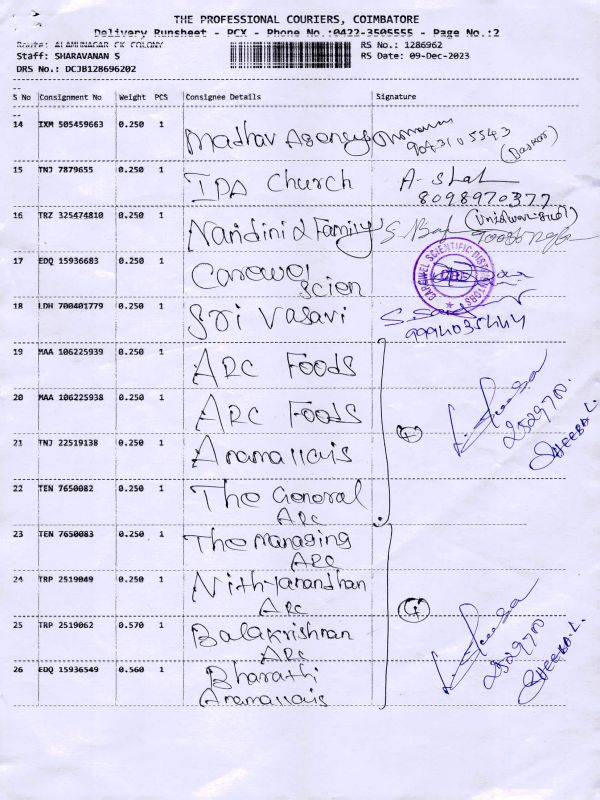 THE PROFESSIONAL COURIERS, COIMBATORE
Delivery Runsheet - PCX - Phone No.:0422-3505555 - Page No.:2
Route: ALAMUNAGAR CK COLONY
RS No.: 1286962
Staff: SHARAVANAN S
RS Date: 09-Dec-2023
DRS No.: DCJB128696202
S No Consignment No Weight PCS Consignee Details Signature
14 IXM 505459663 0.250 1 Madhav Agency
15 TNJ 7879655 0.250 1 IPA Church A. Shah
8098970377
16 TRZ 325474810 0.250 1 Nandini & Family
17 EDQ 15936683 0.250 1 Carewel
Scien
CAREWEL SCIENTIFIC DISTRIBUTORS
18 LDH 700401779 0.250 1 Sri Vasavi
9994035444
19 MAA 106225939 0.250 1 ARC Foods
20 MAA 106225938 0.250 1 ARC Foods
21 TNJ 22519138 0.250 1 Anamallais
2529700.
SHEEBA.L.
22 TEN 7650082 0.250 1 The General
ARC
23 TEN 7650083 0.250 1 The Managing
ARC
24 TRP 2519049 0.250 1 Nithyanandhan
ARC
25 TRP 2519062 0.570 1 Balakrishnan
ARC
2529700
SHEEBA.L.
26 EDQ 15936549 0.560 1 Bharathi
Anamallais